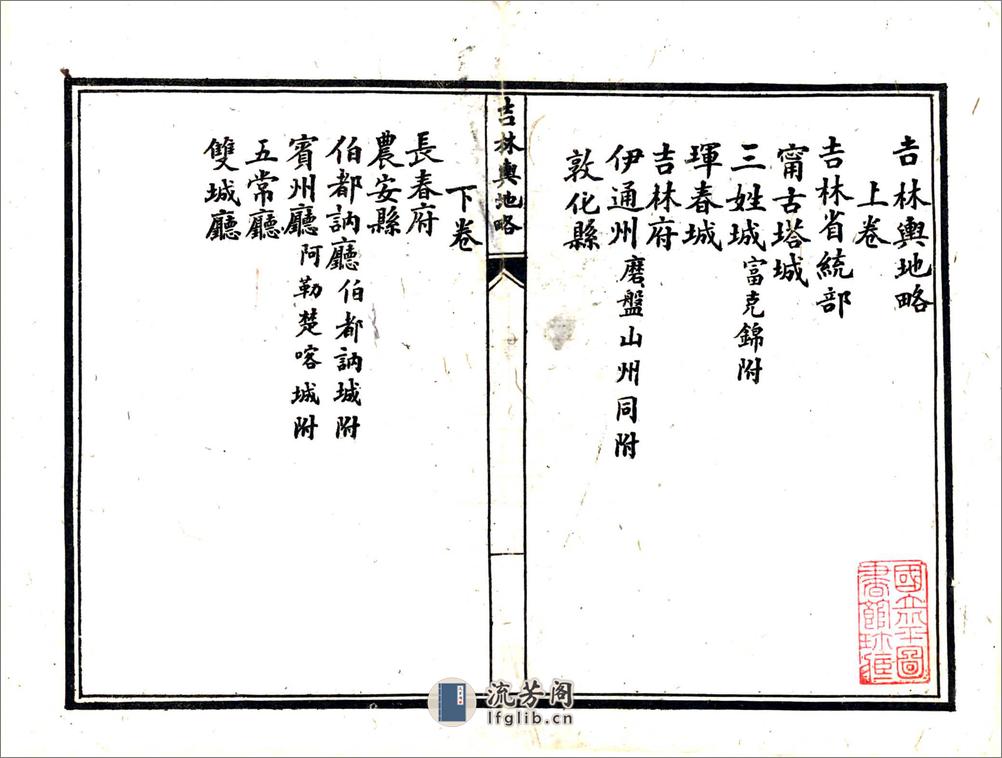 吉林輿地略
上卷
吉林省統部
甯古塔城
三姓城富克錦附
琿春城
吉林府
伊通州磨盤山州同附
敦化縣
吉林輿地略
下卷
長春府
農安縣
伯都訥廳伯都訥城附
賓州廳阿勒楚喀城附
五常廳
雙城廳
國立北平圖
書館珍藏
流芳阁
lfglib.cn